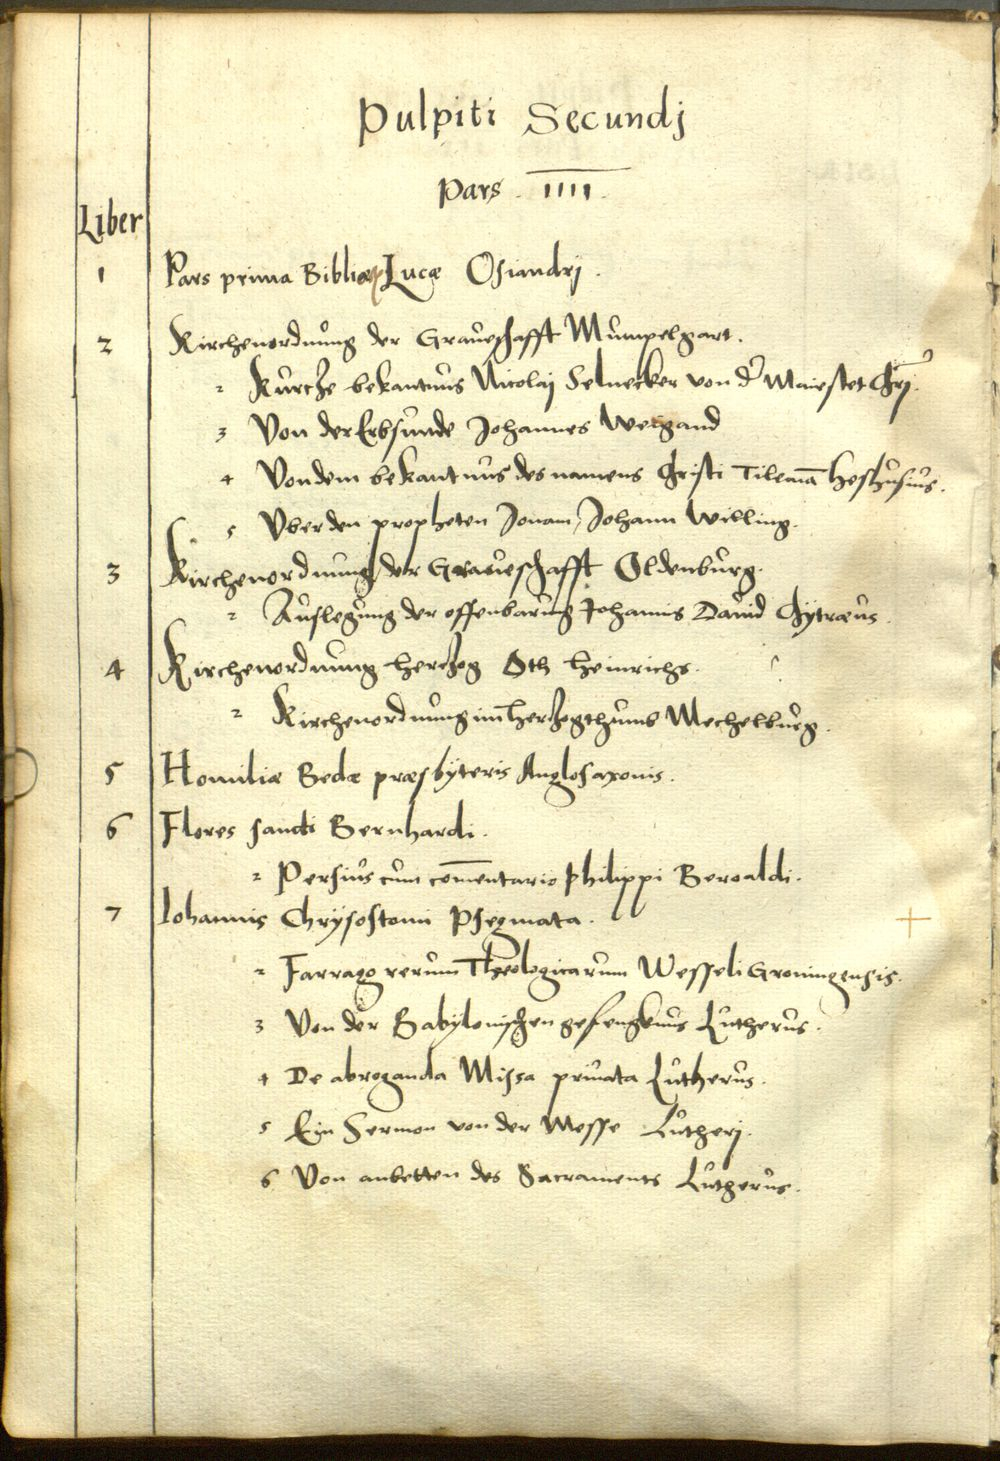 Pulpiti Secundj
Pars . IIII .
Liber
1 Pars prima Bibliæ Lucæ Osiandrj .
2 Kirchenordnung der Graueschafft Mumpelgart .
2 Kurcze bekantnus Nicolaj Selnecker von dʼ Maiestet Chrj̄ .
3 Von der Erbsunde Johannes Weigand
4 Von dem bekantnus des namens Christi Tilemā Heshusius .
5 Vber den propheten Jonam, Johann Willing .
3 Kirchenordnung der Graueschafft Oldenburg .
2 Auslegung der offenbarung Johannis Dauid Chytræus .
4 Kirchenordnung herczog Oth Heinrichs .
2 Kirchenordnung im herczogthumb Mechelburg .
5 Homiliæ Bedæ præsbÿteris Anglosaxonis .
6 Flores sancti Bernhardi .
2 Persius cum com̄entario Philippi Beroaldi .
7 Iohannis Chrÿsostomi Psegmata .
2 Farrago rerum Theologicarum Wesseli Groningensis .
3 Von der Babÿlonischen gefengknus Lutherus .
4 De abroganda Missa priuata Lutherus .
5 Ein Sermon von der Messe Lutherj .
6 Von anbetten des Sacraments Lutherus .